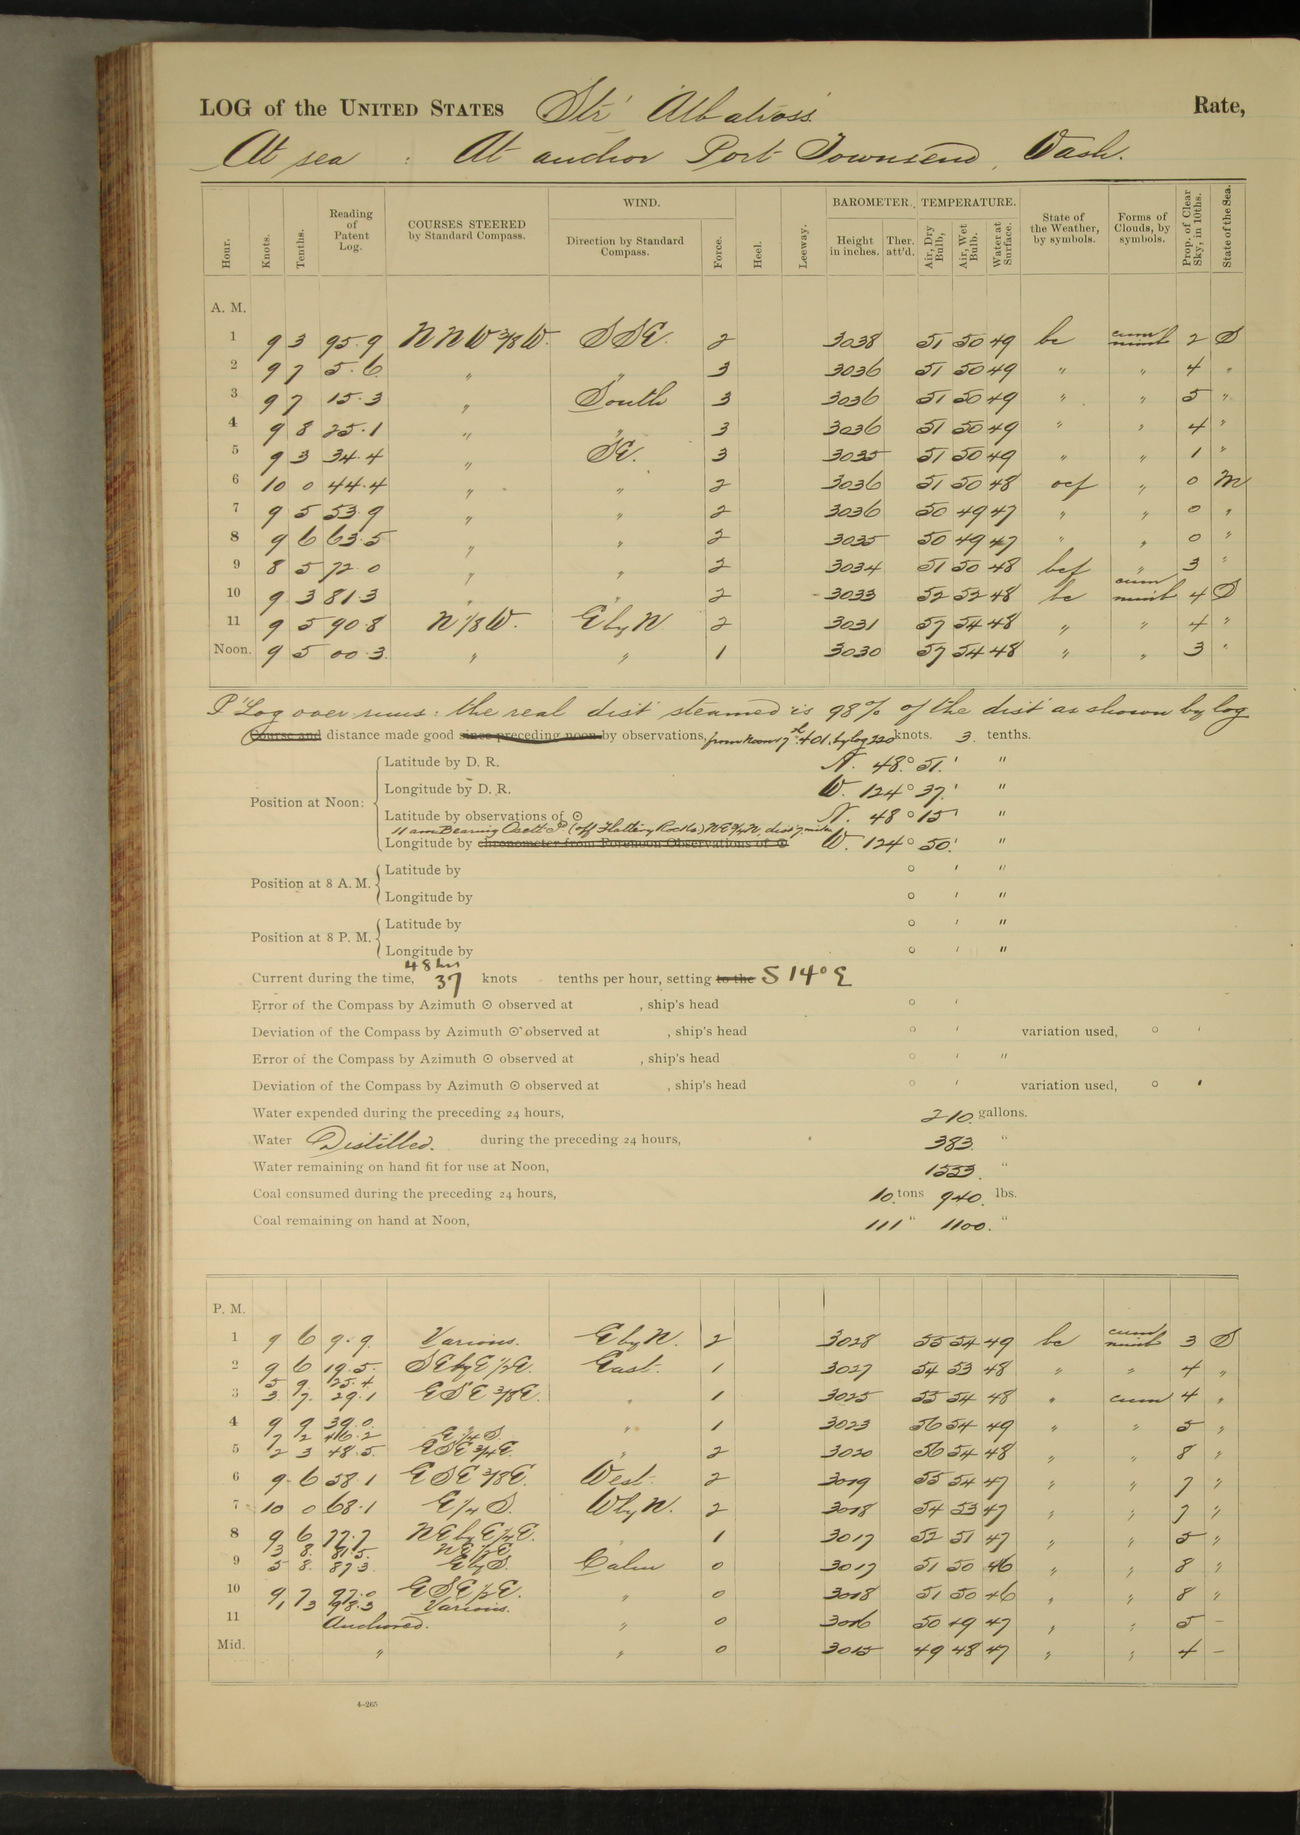 LOG of the UNITED STATES Str' Albatross Rate,
At sea : At anchor Port Townsend, Wash.
Hour. Knots. Tenths. Reading of Patent Log. COURSES STEERED by Standard Compass. WIND. Direction by Standard Compass. Force. Heel. Leeway. BAROMETER. Height in inches. Ther. att'd. TEMPERATURE. Air, Dry Bulb, Air, Wet Bulb. Water at Surface. State of the Weather, by symbols. Forms of Clouds, by symbols. Prop. of Clear Sky, in 10ths. State of the Sea.
A. M.
1 9 3 95.9 NNW 3/8 W. SSE. 2 3038 51 50 49 bc cum nimb 2 S
2 9 7 5.6 " " 3 3036 51 50 49 " " 4 "
3 9 7 15.3 " South 3 3036 51 50 49 " " 5 "
4 9 8 25.1 " " 3 3036 51 50 49 " " 4 "
5 9 3 34.4 " SE. 3 3035 51 50 49 " " 1 "
6 10 0 44.4 " " 2 3036 51 50 48 ocf " 0 M
7 9 5 53.9 " " 2 3036 50 49 47 " " 0 "
8 9 6 63.5 " " 2 3035 50 49 47 " " 0 "
9 8 5 72.0 " " 2 3034 51 50 48 bcf " 3 "
10 9 3 81 3 " " 2 3033 52 52 48 bc cum nimb 4 S
11 9 5 90.8 N 1/8 W. E by N 2 3031 57 54 48 " " 4 "
Noon. 9 5 00 3. " " 1 3030 57 54 48 " " 3 "
P' Log over runs: the real dist steamed is 98% of the dist as shown by log
Course and distance made good since preceding noon by observations, from noon 7th: 401, by log 220 knots. 3 tenths.
Position at Noon:
Latitude by D. R. N. 48° 51.' "
Longitude by D. R. W. 124° 37.' "
Latitude by observations of ⊙ N. 48° 15' "
11 am Bearing Osett P (off Flattery Rocks) NE 3/4 N, dist 7 miles
Longitude by chronometer from Forenoon Observations of ⊙ W. 124° 50.' "
Position at 8 A. M. Latitude by ° ' "
Longitude by ° ' "
Position at 8 P. M. Latitude by ° ' "
Longitude by ° ' "
48 hrs
Current during the time, 37 knots tenths per hour, setting to the S 14° E
Error of the Compass by Azimuth ⊙ observed at , ship's head ° '
Deviation of the Compass by Azimuth ⊙ observed at , ship's head ° ' variation used, ° '
Error of the Compass by Azimuth ⊙ observed at , ship's head ° ' "
Deviation of the Compass by Azimuth ⊙ observed at , ship's head ° ' variation used, ° '
Water expended during the preceding 24 hours, 210 gallons.
Water Distilled. during the preceding 24 hours, 383 "
Water remaining on hand fit for use at Noon, 1553. "
Coal consumed during the preceding 24 hours, 10 tons 940 lbs.
Coal remaining on hand at Noon, 111 " 1100. "
P. M.
1 9 6 9.9 Various. E by N. 2 3028 55 54 49 bc cum nimb 3 S
2 9 6 19.5. SE by E 1/2 E. East. 1 3027 54 53 48 " " 4 "
5 9 25.4
3 3 7. 29.1 ESE 3/8 E. " 1 3025 55 54 48 " cum 4 "
4 9 9 39.0 " 1 3023 56 54 49 " " 5 "
7 2 46.2 E 1/4 S.
5 2 3 48.5. ESE 3/4 E. " 2 3020 56 54 48 " " 8 "
6 9. 6 58.1 ESE 3/8 E. West. 2 3019 55 54 47 " " 7 "
7 10 0 68.1 E 1/4 S. W by N. 2 3018 54 53 47 " " 7 "
8 9 6 77.7 NE by E 1/4 E. " 1 3017 52 51 47 " " 5 "
3 8. 81.5. NE 1/2 E.
9 5 8. 87 3 E by S. Calm 0 3017 51 50 46 " " 8 "
10 9 7 97.0 ESE 1/2 E. " 0 3018 51 50 46 " " 8 "
1 3 98.3 Various.
11 Anchored. " 0 3016 50 49 47 " " 5 -
Mid. " " 0 3015 49 48 47 " " 4 -
4-265